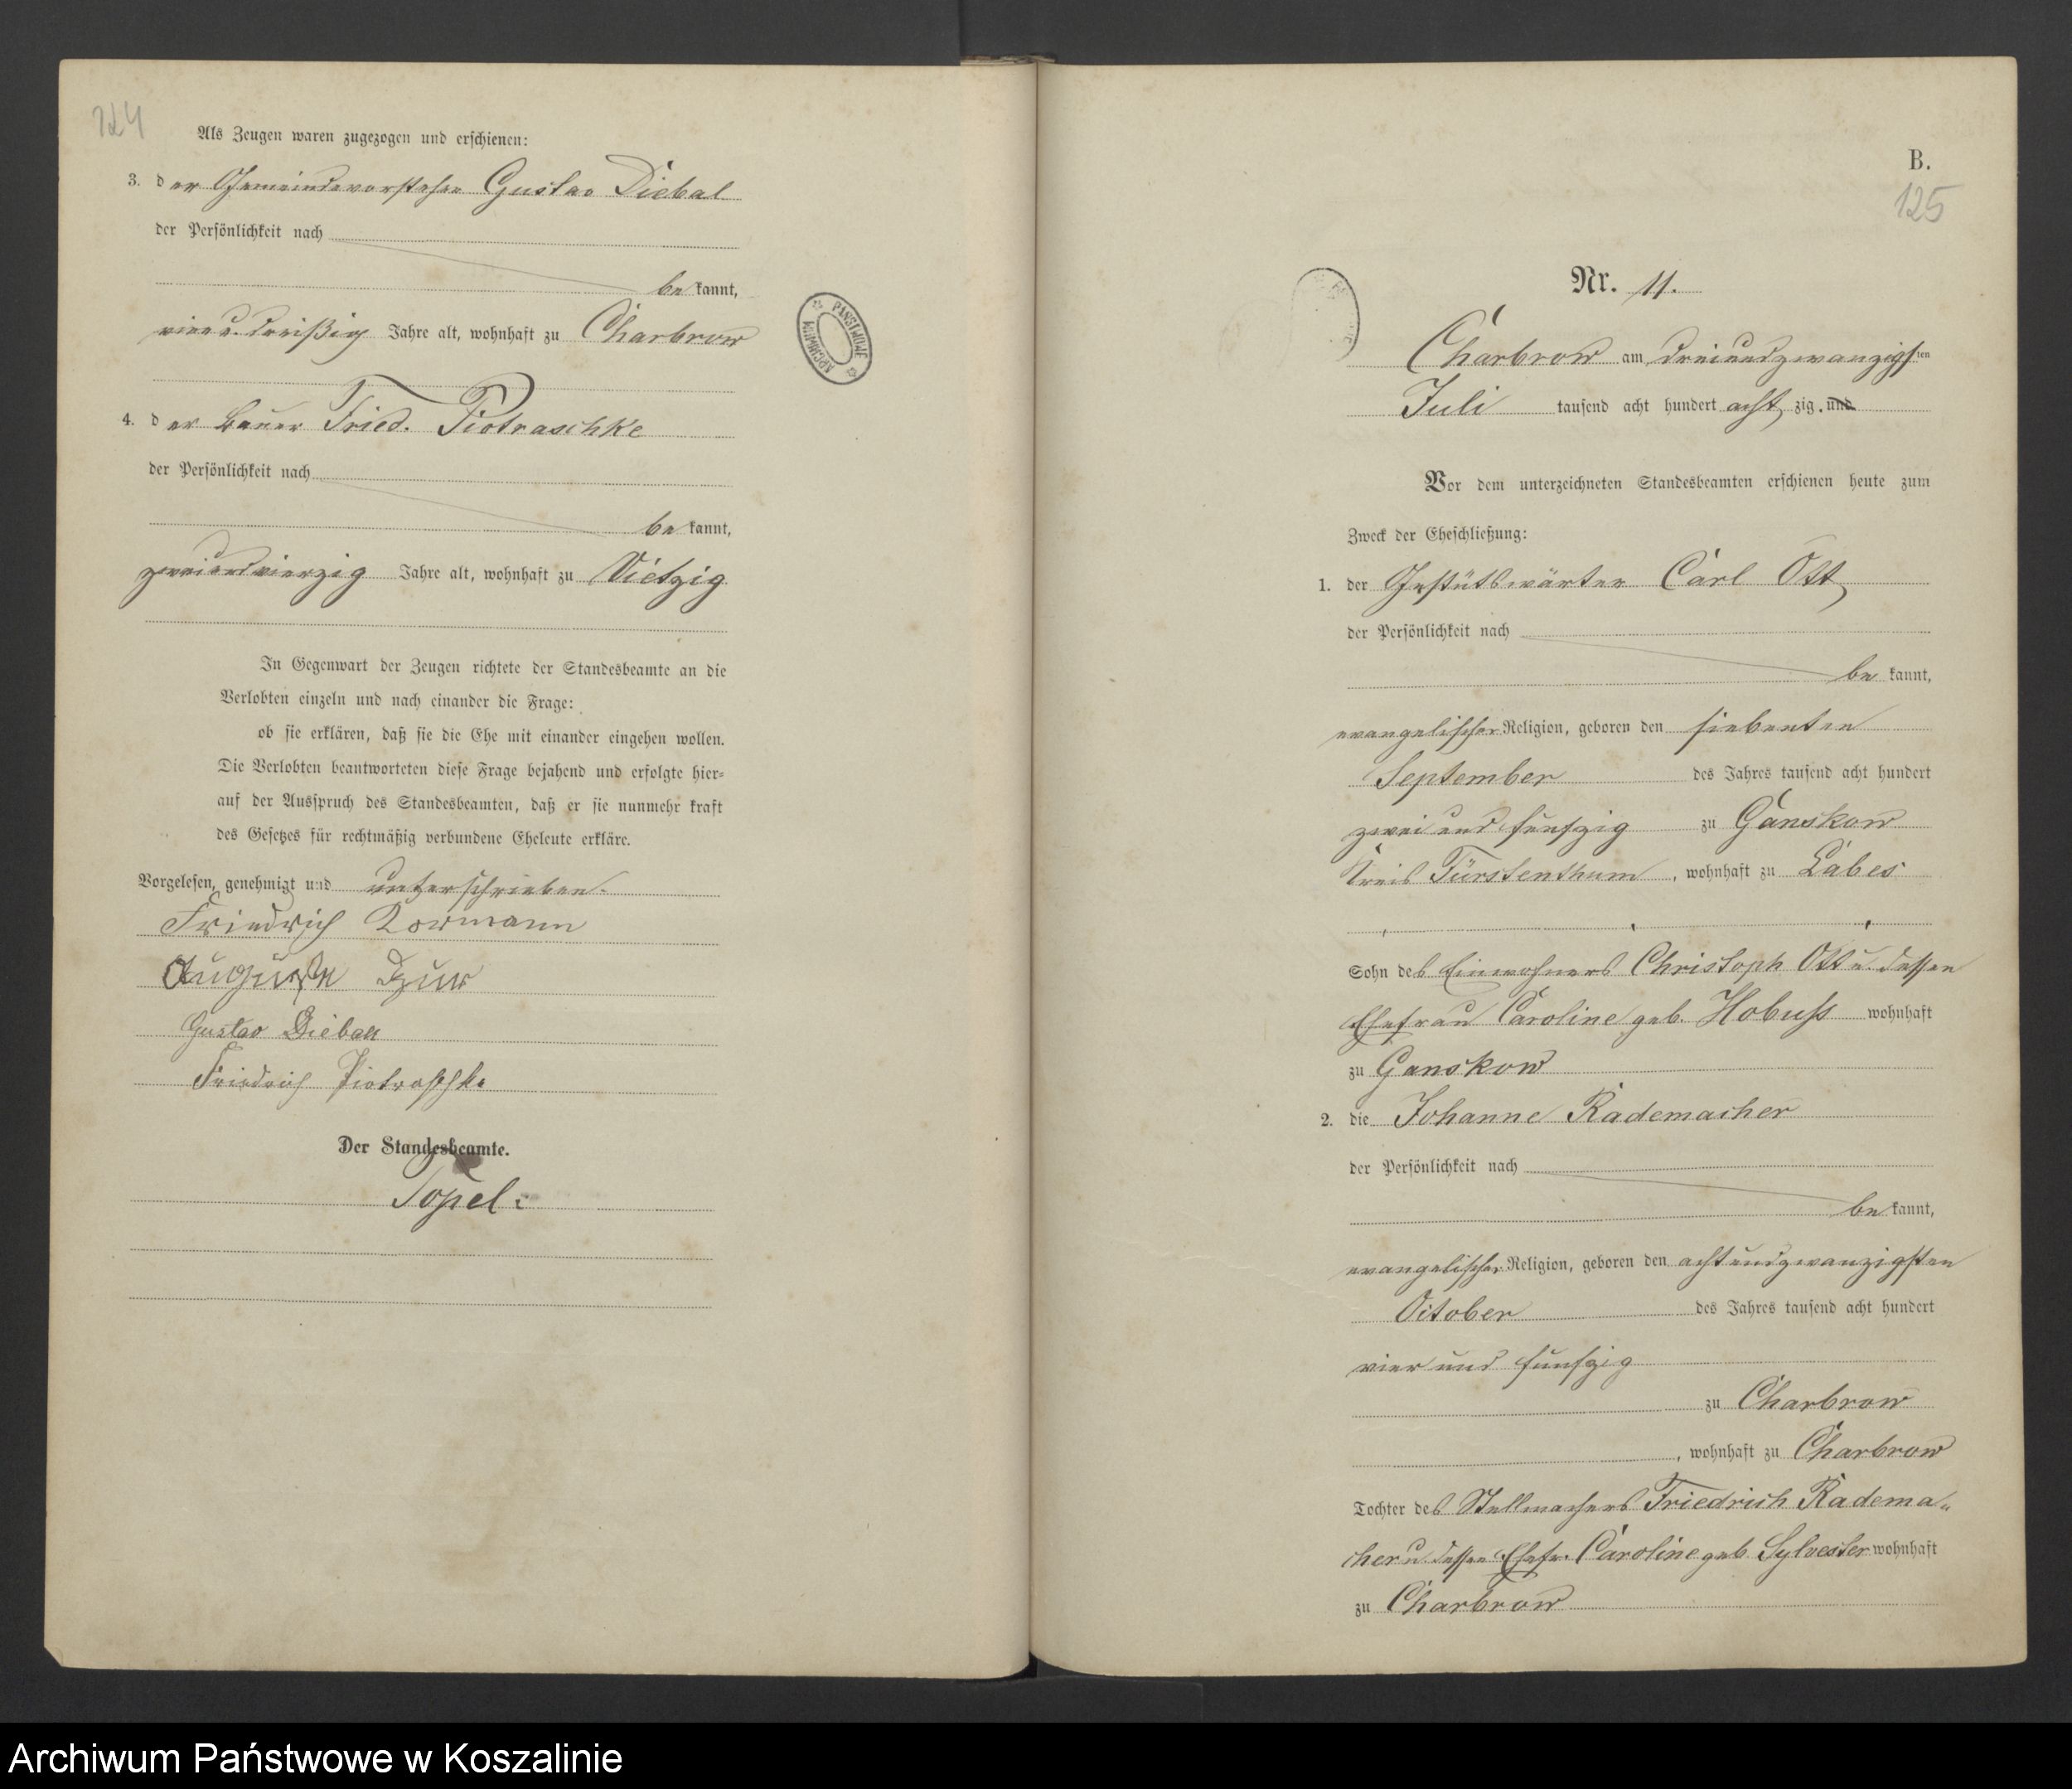 124
Als Zeugen waren zugezogen und erschienen:
3. der Gemeindevorsteher Gustav Diebal
der Persönlichkeit nach
bekannt,
vier u. dreißig Jahre alt, wohnhaft zu Charbrow
4. der Bauer Fried. Piotraschke
der Persönlichkeit nach
bekannt,
zweiundvierzig Jahre alt, wohnhaft zu Vietzig
In Gegenwart der Zeugen richtete der Standesbeamte an die
Verlobten einzeln und nach einander die Frage:
ob sie erklären, daß sie die Ehe mit einander eingehen wollen.
Die Verlobten beantworteten diese Frage bejahend und erfolgte hier=
auf der Ausspruch des Standesbeamten, daß er sie nunmehr kraft
des Gesetzes für rechtmäßig verbundene Eheleute erkläre.
Vorgelesen, genehmigt und unterschrieben.
Friedrich
Auguste
Gustav Diebal
Friedrich Piotraschke
Der Standesbeamte.
Topel.
ARCHIWUM PAŃSTWOWE
B.
125
Nr. 11.
Charbrow am dreiundzwanzigsten
Juli tausend acht hundert achtzig. und
Vor dem unterzeichneten Standesbeamten erschienen heute zum
Zweck der Eheschließung:
1. der Gestütswärter Carl Ott
der Persönlichkeit nach
bekannt,
evangelischer Religion, geboren den siebenten
September des Jahres tausend acht hundert
zwei und funfzig zu Ganskow
Kreis Fürstenthum, wohnhaft zu Labes
Sohn des Einwohners Christoph Ott u. dessen
Ehefrau Caroline geb. Hobuss wohnhaft
zu Ganskow
2. die Johanne Rademacher
der Persönlichkeit nach
bekannt,
evangelischer Religion, geboren den achtundzwanzigsten
October des Jahres tausend acht hundert
vier und funfzig
zu Charbrow
, wohnhaft zu Charbrow
Tochter des Stellmachers Friedrich Radema-
cher u. dessen Ehefr. Caroline geb. Sylvester wohnhaft
zu Charbrow
Archiwum Państwowe w Koszalinie